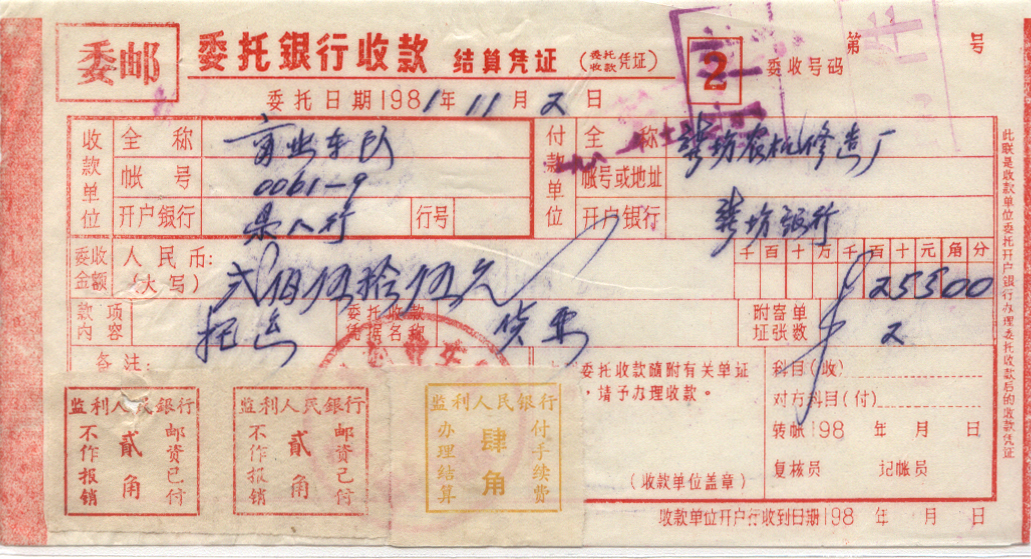 委邮
委托銀行收款 结算凭证 (委托收款凭证)
2
委收号码
第 号
委托日期1981年11月2日
收款单位
全称 商业车队
帐号 0061-9
开户銀行 县人行
行号
付款单位
全称 龚坊农机修造厂
帐号或地址
开户銀行 龚坊银行
委收金額
人民币:
(大写) 弍佰伍拾伍元
千百十万千百十元角分
25500
款项内容
委托收款凭据名称 货票
附寄单证张数 2
备注:
委托收款随附有关单证
,请予办理收款。
(收款单位盖章)
科目(收)
对方科目(付)
转帐198 年 月 日
复核员 记帐员
收款单位开户行收到日期198 年 月 日
此联是收款单位委托开户銀行办理委托收款后的发款凭证
监利人民銀行
不作报销
贰角
邮资已付
监利人民銀行
不作报销
贰角
邮资已付
监利人民銀行
办理结算
肆角
付手续费